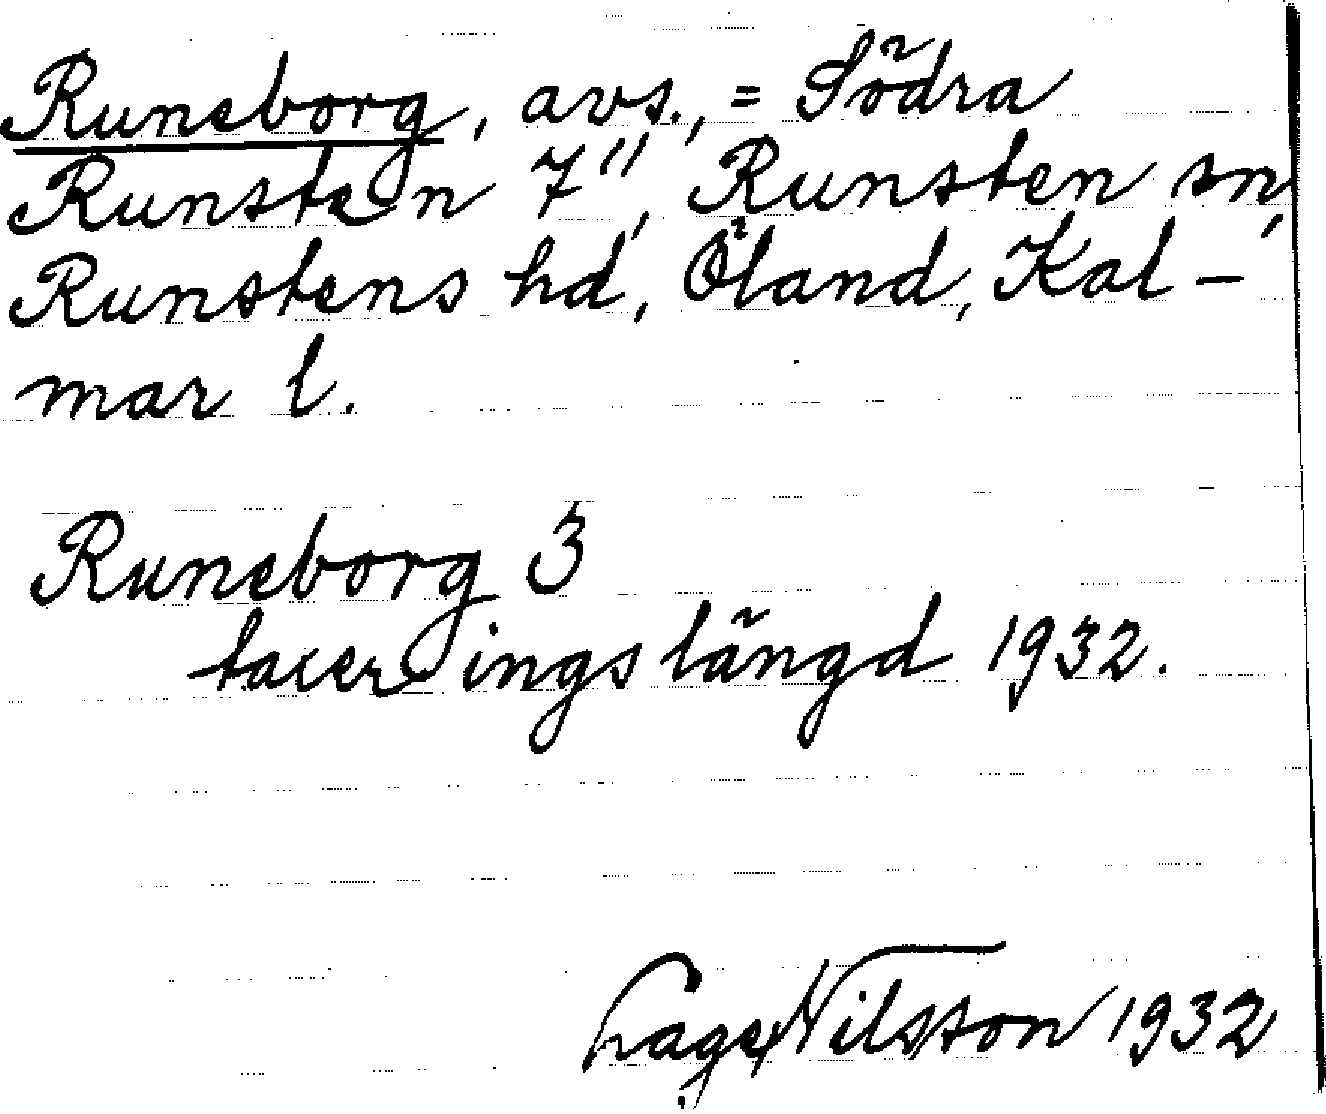 Runeborg, avs., = Södra
Runsten 7", Runsten sn,
Runstens hd, Öland, Kal-
mar l.
Runeborg 3
taxeringslängd 1932.
Nilsson 1932